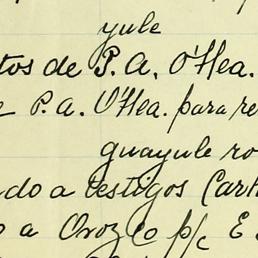 yule
tos de P. A. O'Hea.
P. A. O'Hea. para re
guayule ro
do a testigos Cart
a Orozco p/c E